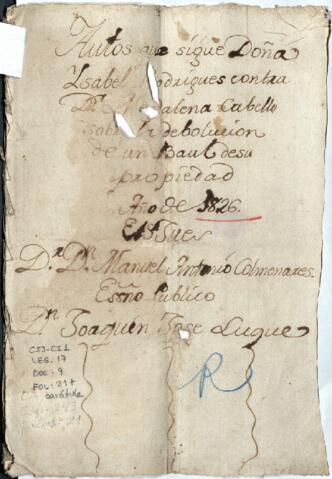 Autos que sigue Doña
Ysabel Rodrigues contra
Dª Madalena Cabello
sobre la debolucion
de un Baul de su
propiedad
Año de 1826.
El Sr Jues
Dr. Dn. Manuel Antonio Colmenares.
Esno Publico
Dn Joaquen Jose Luque
CSJ-CS1
LEG. 17
DOC. 9
FOL. 21 +
carátula
R